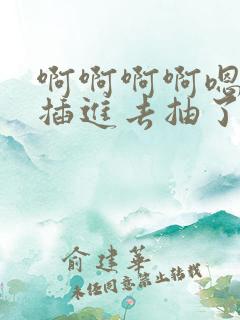 啊啊啊啊嗯
插進去抽了
俞建華
未经同意禁止转载